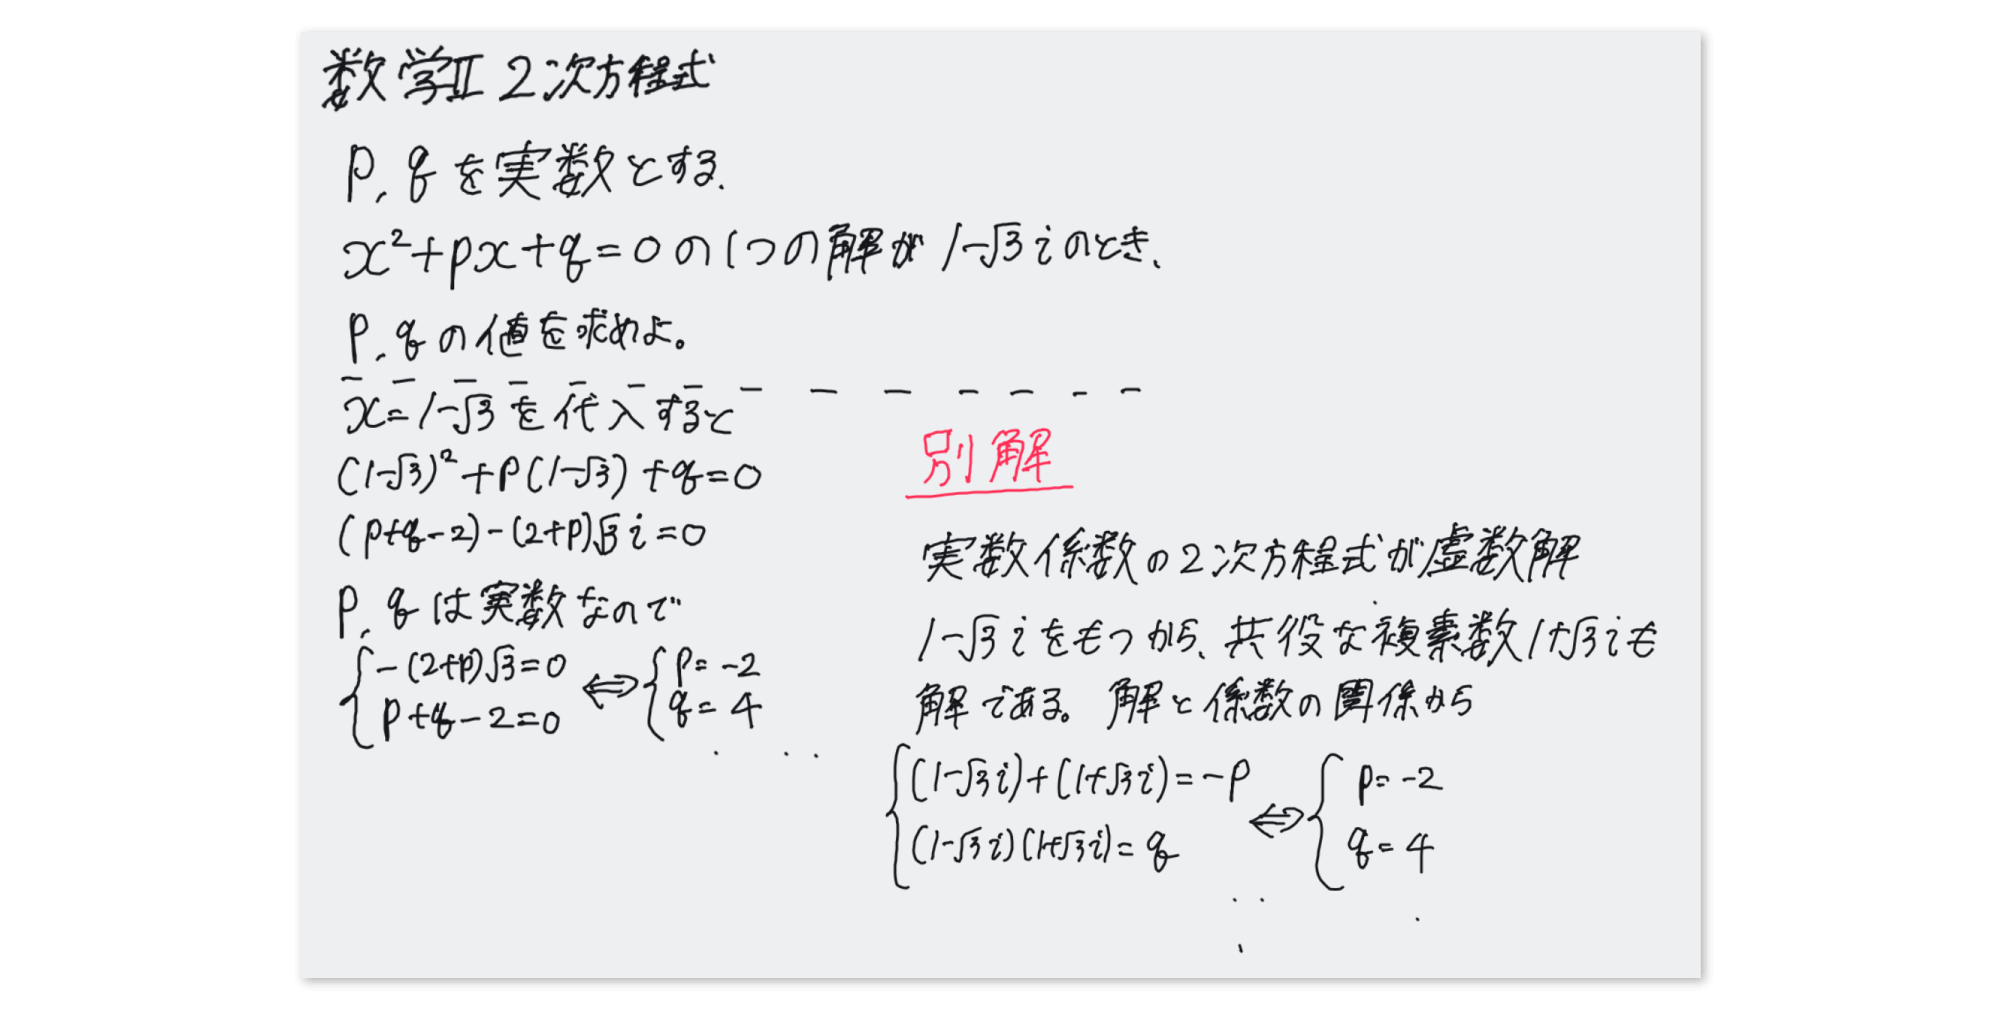 数学Ⅱ 2次方程式
p, qを実数とする.
x²+px+q=0の1つの解が1-√3iのとき、
p, qの値を求めよ。
x=1-√3を代入すると
(1-√3)²+p(1-√3)+q=0
(p+q-2)-(2+p)√3i=0
p, qは実数なので
{-(2+p)√3=0 ⇔ {p=-2
p+q-2=0 q=4
別解
実数係数の2次方程式が虚数解
1-√3iをもつから、共役な複素数1+√3iも
解である。解と係数の関係から
{(1-√3i)+(1+√3i)=-p ⇔ {p=-2
(1-√3i)(1+√3i)=q q=4